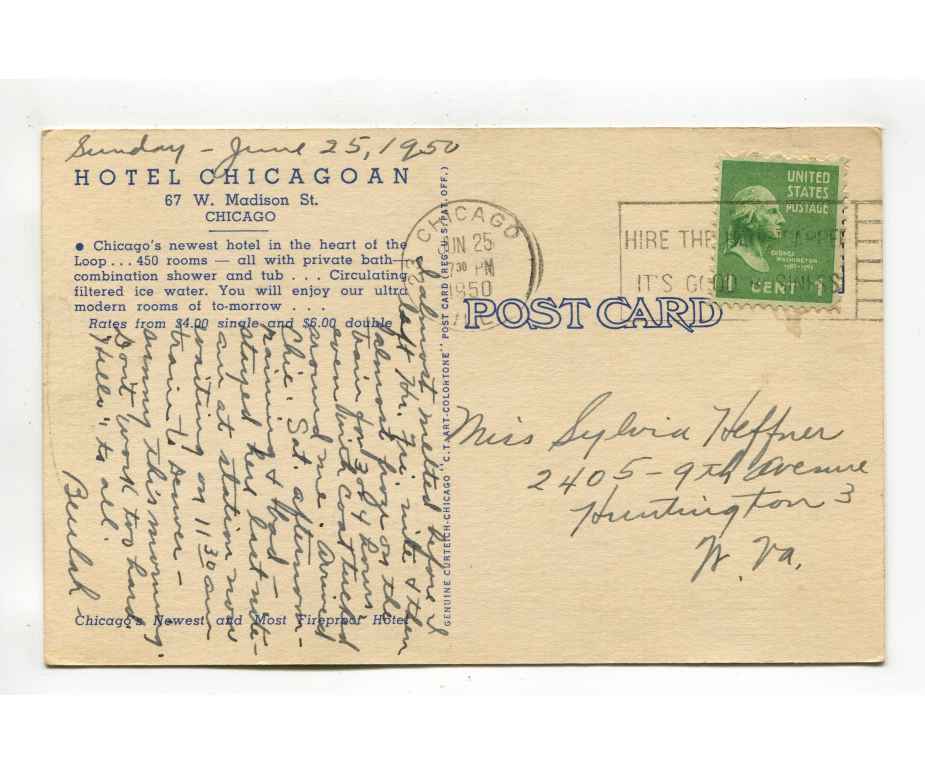 Sunday - June 25, 1950
HOTEL CHICAGOAN
67 W. Madison St.
CHICAGO
• Chicago's newest hotel in the heart of the
Loop . . . 450 rooms — all with private bath—
combination shower and tub . . . Circulating
filtered ice water. You will enjoy our ultra
modern rooms of to-morrow . . .
Rates from $4.00 single and $6.00 double
I almost melted before I
left Htn. Fri. nite & then
almost froze on the
train for 3 or 4 hours
even with coat tucked
around me. Arrived
Chic. Sat. afternoon-
raining & cool —
stayed here last nite-
am at station now
waiting on 11 30 am
train to Denver -
Sunny this morning.
Don't work too hard.
"Hello" to all.
Beulah
Chicago's Newest and Most Fireproof Hotel
GENUINE CURTEICH-CHICAGO "C.T. ART-COLORTONE" POST CARD (REG. U. S. PAT. OFF.)
CHICAGO
JUN 25
7 30 PM
1950
HIRE THE
IT'S GOOD
UNITED
STATES
POSTAGE
GEORGE
WASHINGTON
1789-1797
1 CENT 1
POST CARD
Miss Sylvia Heffner
2405 - 9th Avenue
Huntington 3
W. Va.